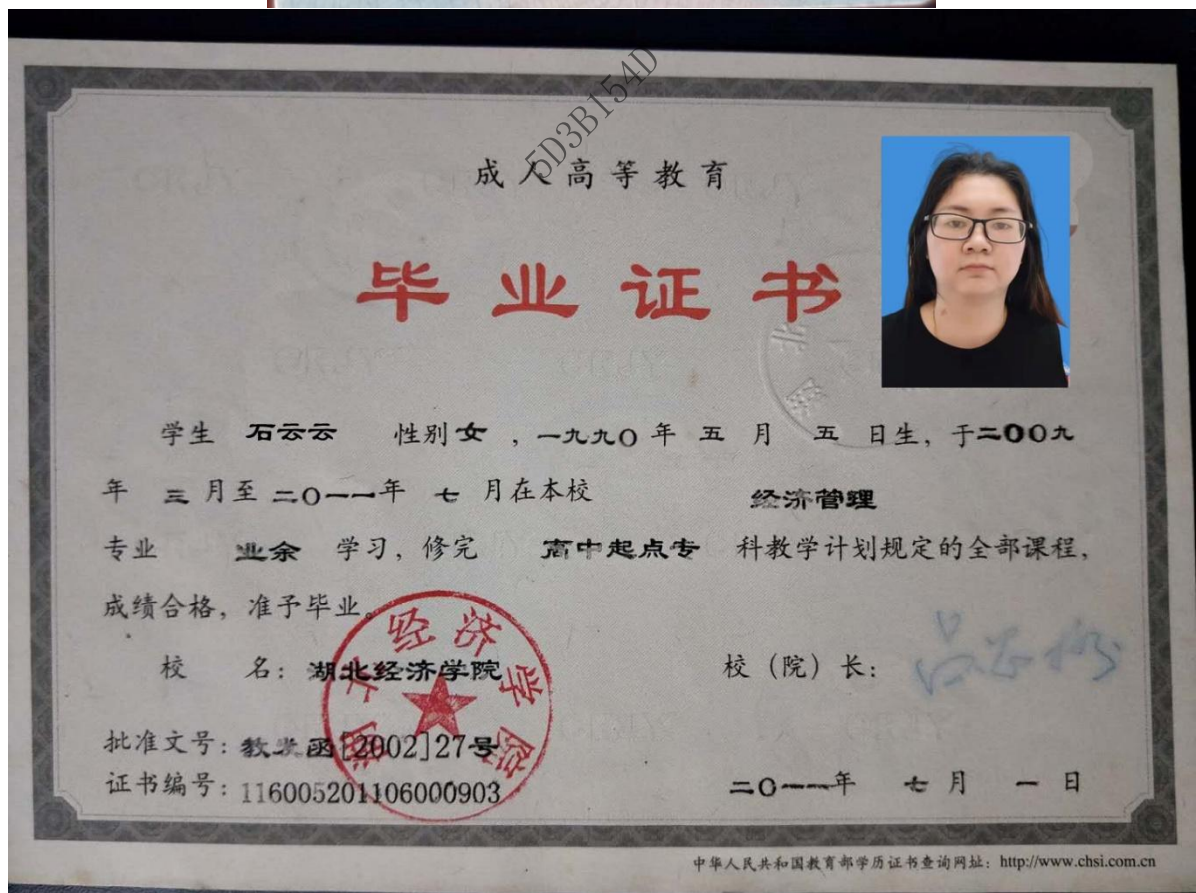 5D3B154D
成人高等教育
毕业证书
学生 石云云 性别 女 ，一九九〇 年 五 月 五 日生，于二〇〇九
年 三 月至 二〇一一年 七 月在本校 经济管理
专业 业余 学习，修完 高中起点专 科教学计划规定的全部课程，
成绩合格，准予毕业。
校 名：湖北经济学院 校（院）长：
湖北经济学院
批准文号：教发函[2002]27号
证书编号：116005201106000903 二〇一一年 七 月 一 日
中华人民共和国教育部学历证书查询网址：http://www.chsi.com.cn